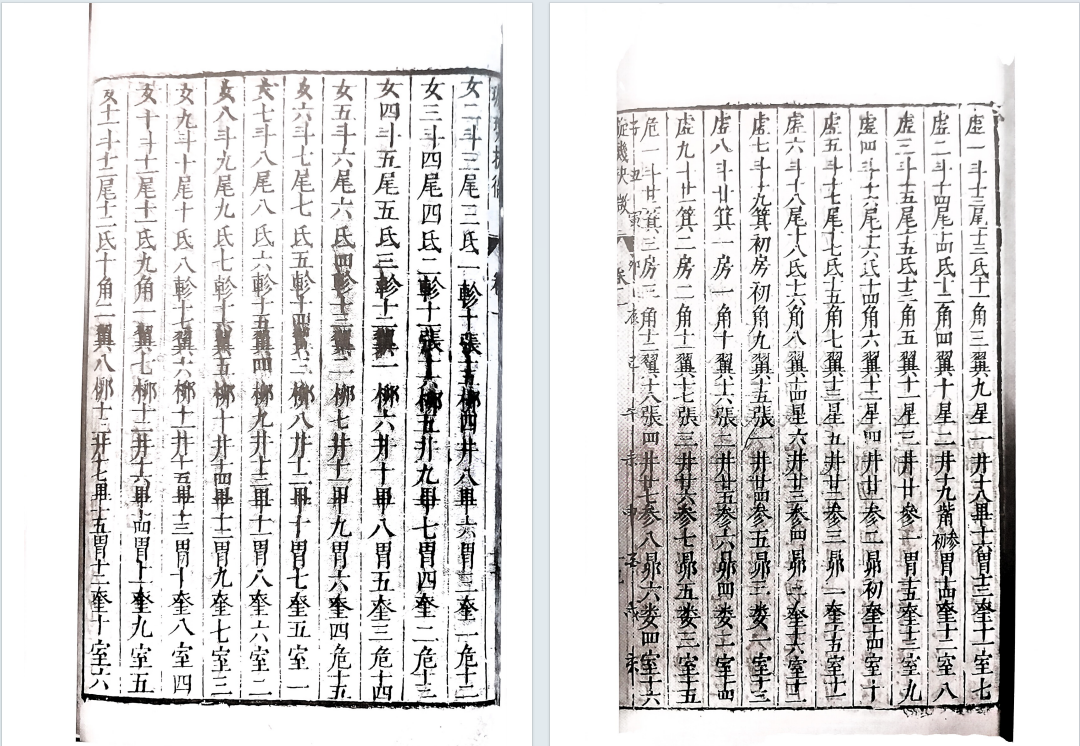 璇璣抉微 卷一
女二斗三尾三氐一軫十張十五栁四井八畢六胃三奎一危十二
女三斗四尾四氐二軫十一張十六栁五井九畢七胃四奎二危十三
女四斗五尾五氐三軫十二翼一栁六井十畢八胃五奎三危十四
女五斗六尾六氐四軫十三翼二栁七井十一畢九胃六奎四危十五
女六斗七尾七氐五軫十四翼三栁八井十二畢十胃七奎五室一
女七斗八尾八氐六軫十五翼四栁九井十三畢十一胃八奎六室二
女八斗九尾九氐七軫十六翼五栁十井十四畢十二胃九奎七室三
女九斗十尾十氐八軫十七翼六栁十一井十五畢十三胃十奎八室四
女十斗十一尾十一氐九角一翼七栁十二井十六畢十四胃十一奎九室五
女十一斗十二尾十二氐十角二翼八栁十三井十七畢十五胃十二奎十室六
虚一斗十三尾十三氐十一角三翼九星一井十八畢十六胃十三奎十一室七
虚二斗十四尾十四氐十二角四翼十星二井十九觜初参初胃十四奎十二室八
虚三斗十五尾十五氐十三角五翼十一星三井廿參一胃十五奎十三室九
虚四斗十六尾十六氐十四角六翼十二星四井廿一参二昴初奎十四室十
虚五斗十七尾十七氐十五角七翼十三星五井廿二参三昴一奎十五室十一
虚六斗十八尾十八氐十六角八翼十四星六井廿三参四昴二奎十六室十二
虚七斗十九箕初房初角九翼十五張一井廿四参五昴三娄一室十三
虚八斗廿箕一房一角十翼十六張二井廿五参六昴四娄二室十四
虚九斗廿一箕二房二角十一翼十七張三井廿六参七昴五娄三室十五
危一斗廿二箕三房三角十二翼十八張四井廿七参八昴六娄四室十六
子丑寅卯辰巳午未申
璇璣抉微 卷一